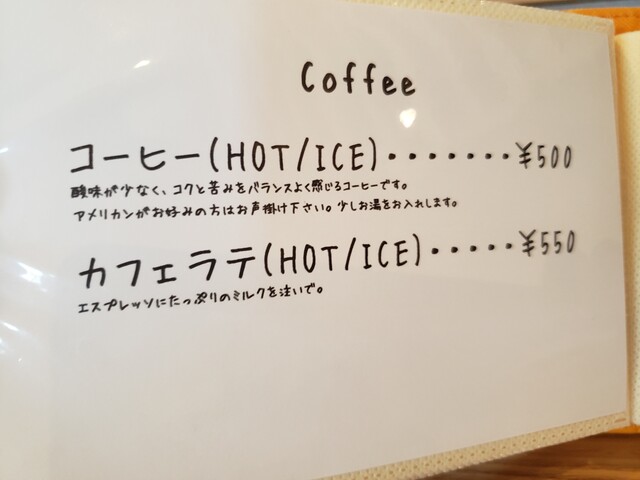 Coffee
コーヒー(HOT/ICE)・・・・・・・¥500
酸味が少なく、コクと苦みをバランスよく感じるコーヒーです。
アメリカンがお好みの方はお声掛け下さい。少しお湯をお入れします。
カフェラテ(HOT/ICE)・・・・・¥550
エスプレッソにたっぷりのミルクを注いで。